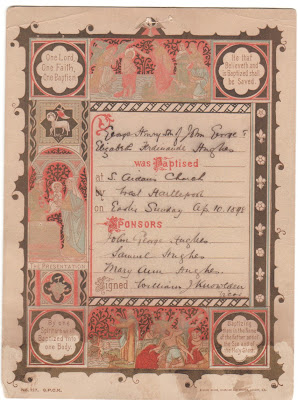 One Lord,
One Faith,
One Baptism
He that
Believeth and
is Baptized shall
be Saved.
George Henry of John George &
Elizabeth Ferdinanda Hughes
was Baptised
at S. Aidans Church
by West Hartlepool
on Easter Sunday Ap. 10. 1898
Sponsors
John George Hughes
Samuel Hughes
Mary Ann Hughes
Signed William J Knowlden
The Presentation
By one
Spirit are we all
Baptized into
one Body.
Baptizing
them in the Name
of the Father and of
the Son and of
the Holy Ghost